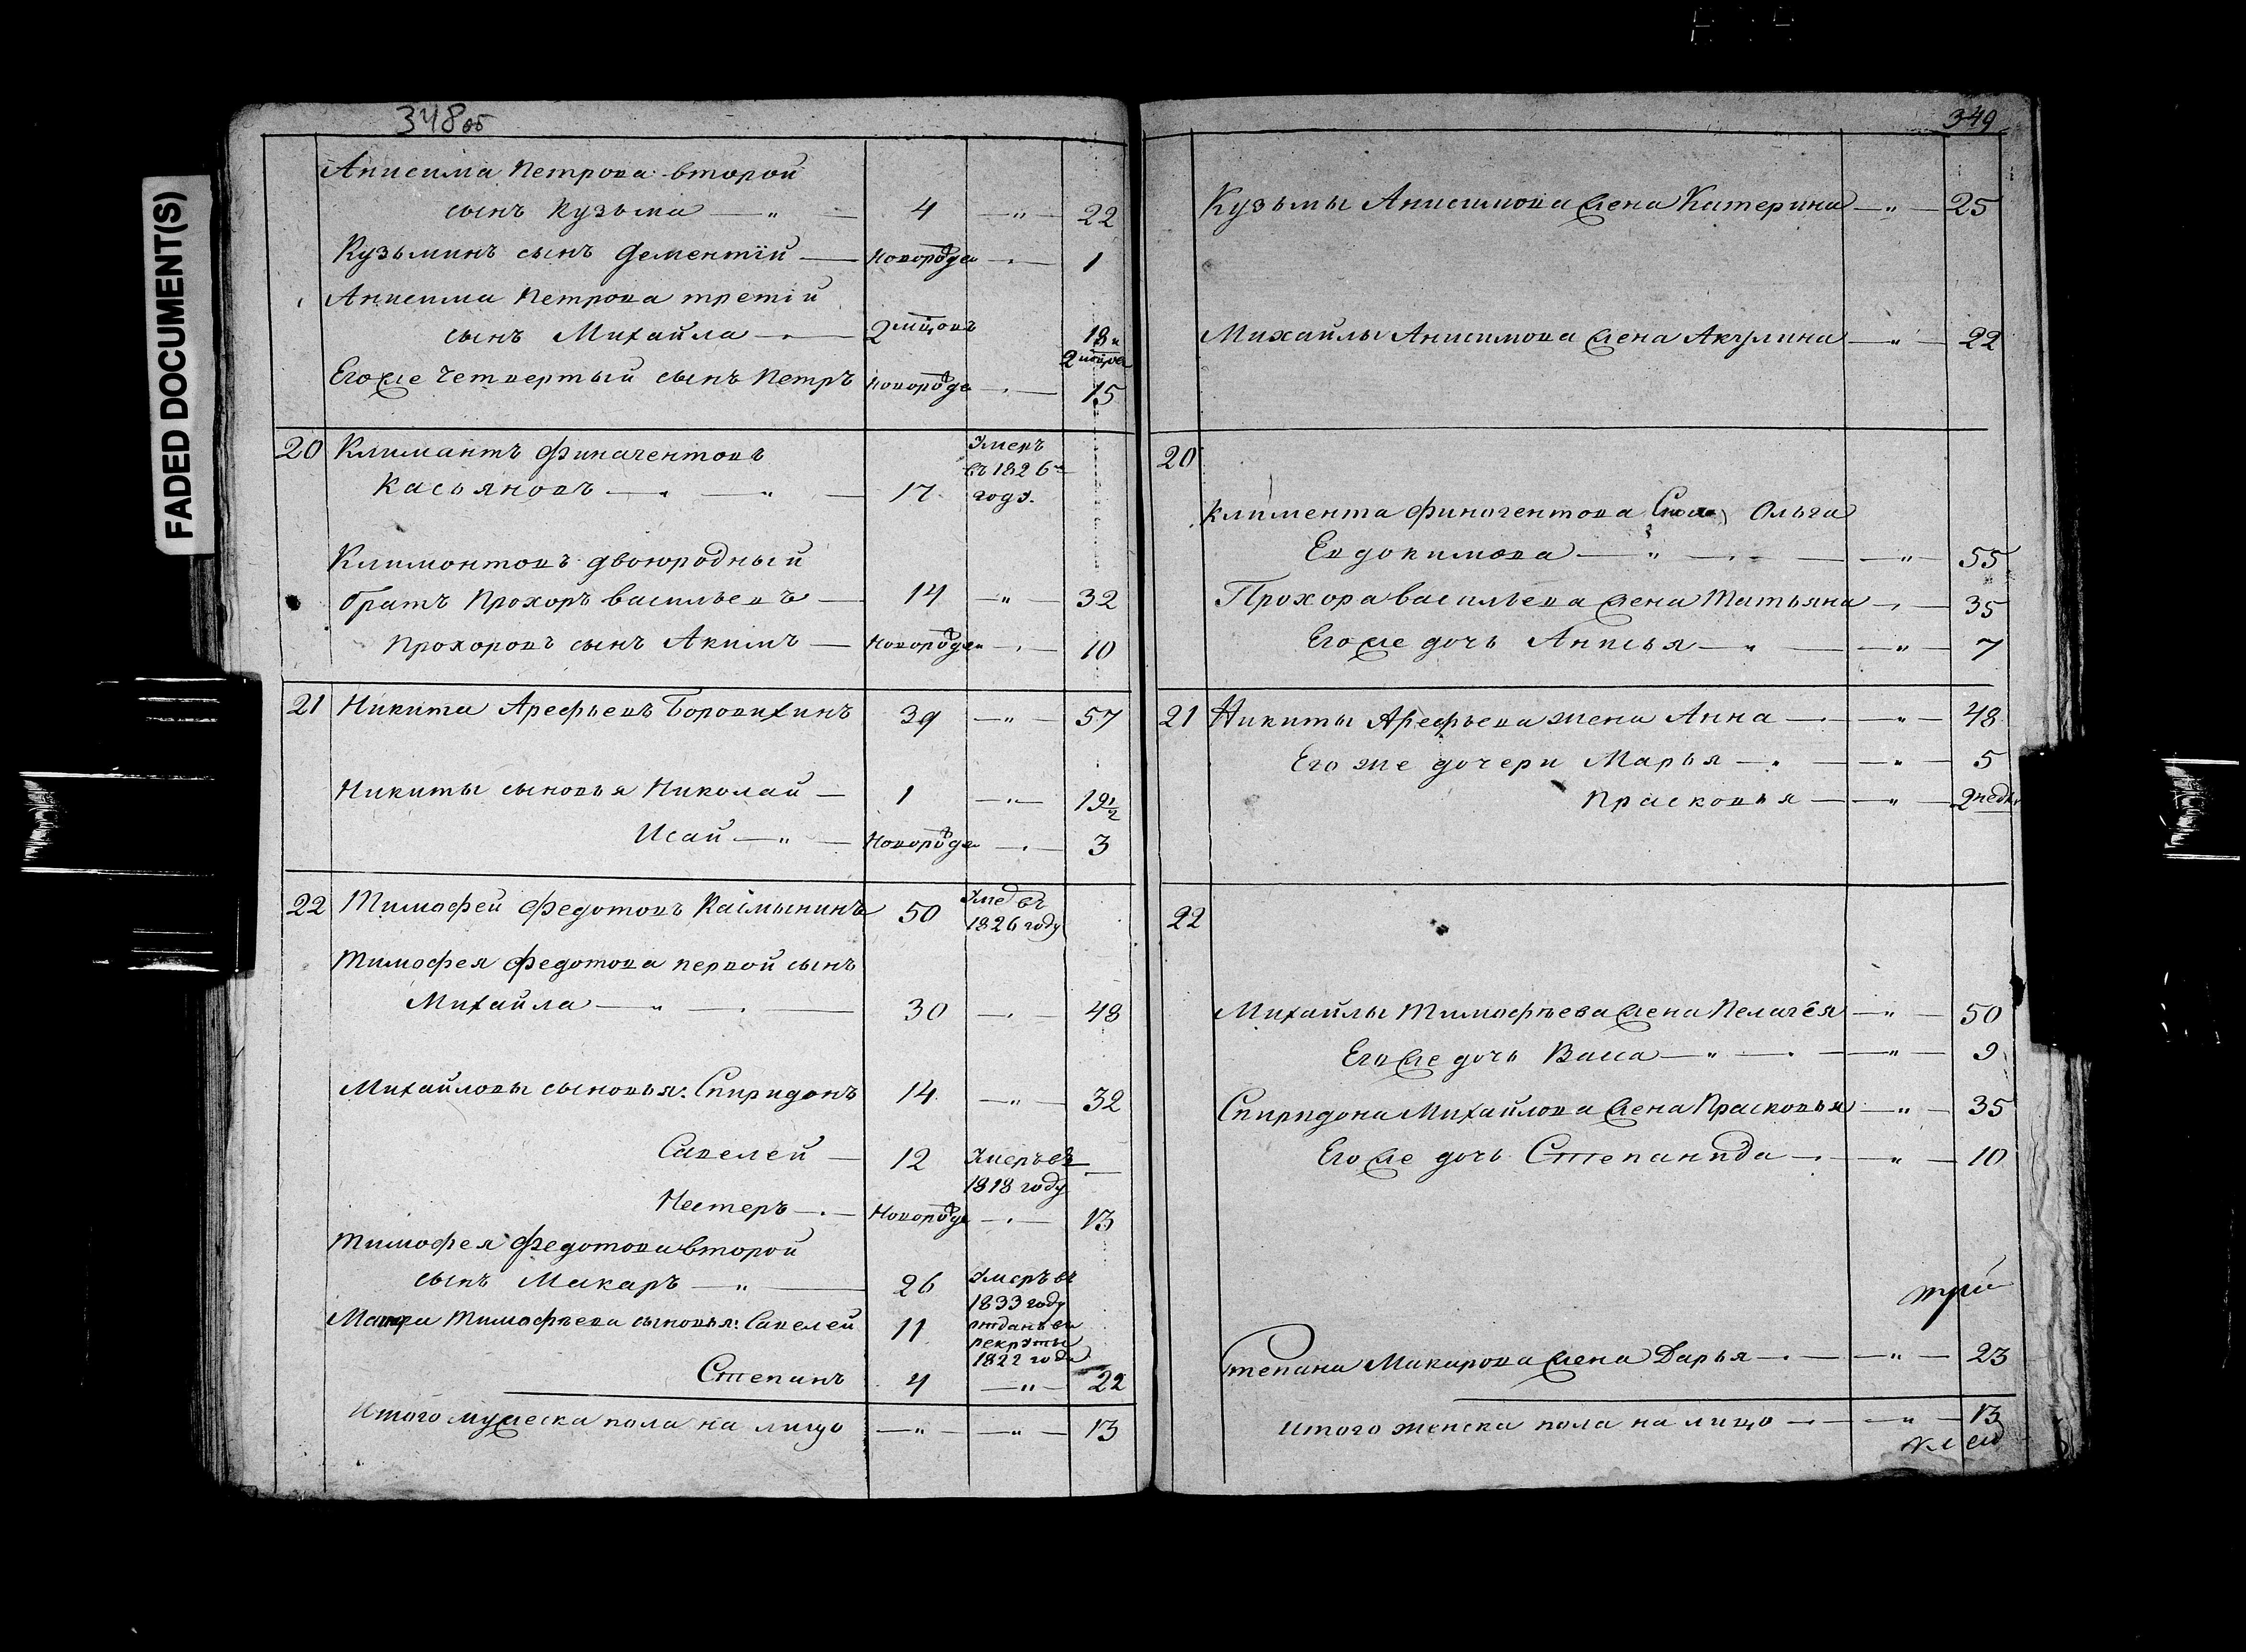 348об
Анисима Петрова второй
сынъ Кузьма — " — 4 — " — 22
Кузьминъ сынъ Дементїй — новорожде — 1
Анисима Петрова третій
сынъ Михайла — 2 мцовъ 18 и
2 мцов
Егоже четвертый сынъ Петръ новорожде — 15
20 Климантъ Финагентовъ Умеръ
въ 1826м
Касьяновъ — " — 17 году.
Климонтовъ двоюродный
братъ Прохоръ васильевъ — 14 — " — 32
Прохоровъ сынъ Акимъ — Новорожде — 10
21 Никита Арефьевъ Боровихинъ 39 — " — 57
Никиты сыновья Николай — 1 — " — 19 1/2
Исай — " — Новорожде — 3
22 Тимофей Федотовъ 50 Уме въ
1826 году
Тимофея Федотова первой сынъ
Михайла — " — 30 — 48
Михайловы сыновья: Спиридонъ 14 — " — 32
Савелей — 12 Умеръ въ —
1818 году
Нестеръ — Новорожде — 13
Тимофея Федотова второй
сынъ Макаръ — " — 26 Умеръ въ
1833 году
Макара Тимофѣева сыновья: Савелей 11 отданъ въ
рекруты
1822 года
Степанъ 4 — " — 22
Итого мужеска пола на лицо — " — — " — 13
349
Кузьмы Анисимова жена Катерина — " — 25
Михайлы Анисимова жена Акулина — " — 22
20
Климента Финогентова Ольга
Евдокимова — " — — " — 55
Прохора васильева жена Татьяна — 35
Егоже дочь Анисья — " — — " — 7
21 Никиты Арефьева жена Анна — " — 48
Его же дочери Марья — " — 5
Прасковья — " — 2 недѣ
22
Михайлы Тимофѣева жена Пелагея — " — 50
Егоже дочь Васса — " — — " — 9
Спиридона Михайлова жена Прасковья — " — 35
Егоже дочь Степанида — " — 10
Степана Макарова жена Дарья — " — 23
Итого женска пола на лицо — " — 13
FADED DOCUMENT(S)